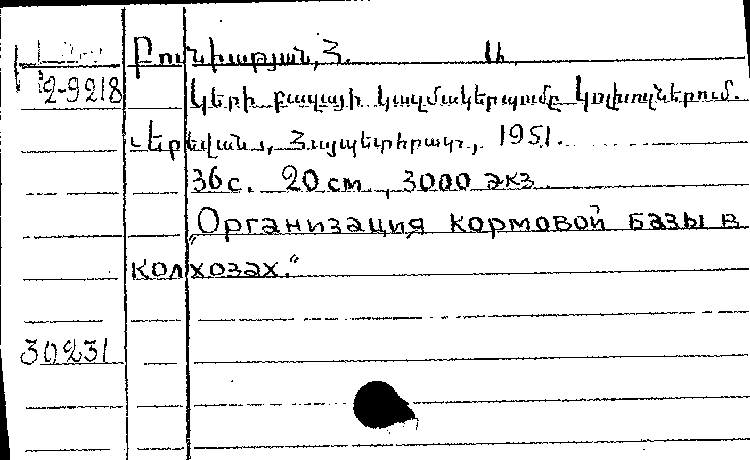 Բունիաթյան, Հ. Ա.
2-9218
Կերի բազայի կազմակերպումը կոլխոզներում.
Երևան, Հայպետհրատ, 1951.
36 с. 20 см, 3000 экз
„Организация кормовой базы в
колхозах."
30231